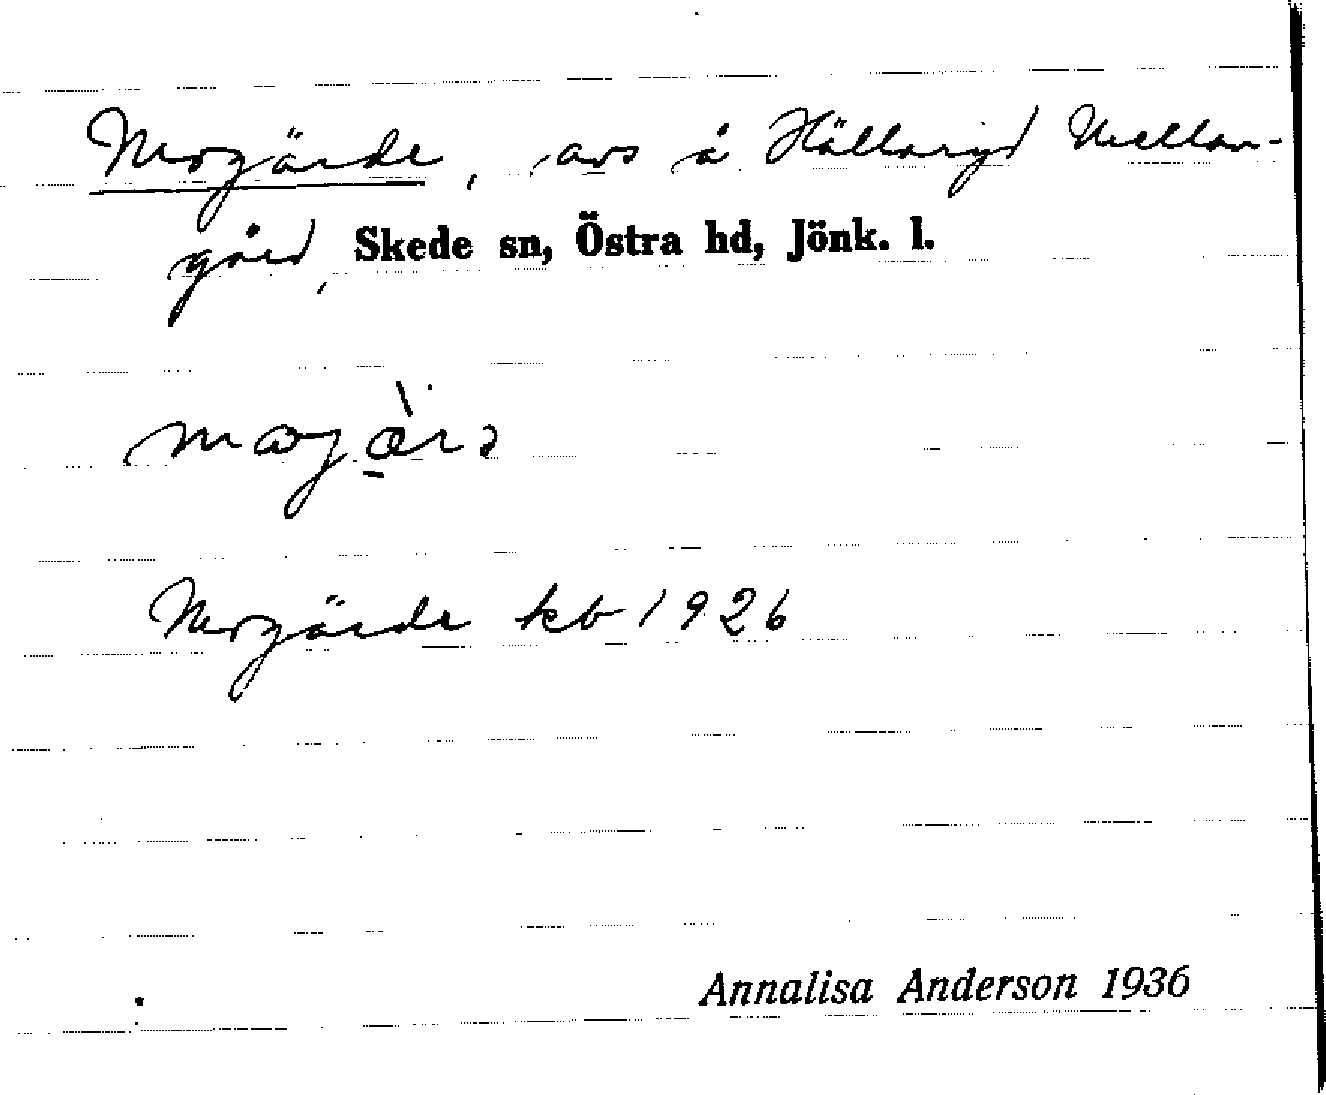 Mogärde, avs å Hällaryd Mellan-
gård, Skede sn, Östra hd, Jönk. l.
Mogärde kb 1926
Annalisa Anderson 1936